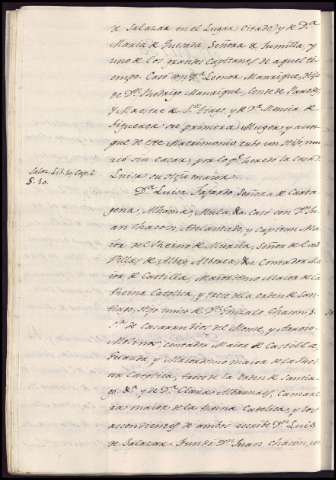 de Salazar en el Lugar Citado, y de D.ª
Maria de Quesada, Señora de Jumilla, y
uno de los grandes Capitanes de aquel ti-
empo. Casó con D.ª Leonor Manrique, Hija
de D.n Rodrigo Manrique, Conde de Paredes,
y Maestre de S.n Tiago, y D.ª Mencia de
Figueroa su primera Muger, y aun-
que de este Matrimonio tubo un Hijo, mu-
rió sin casar, por lo q.e heredó la casa D.ª
Luisa su Hija maior.
Salaz. Lib. Cap.
§. 10.
D.ª Luisa Fajardo, Señora de Carta-
gena, Alhama, Mula &a. Casó con D.n Ju-
an Chacon, Adelantado, y Capitan Ma-
ior del Reyno de Murcia, Señor de Los
Velez, de Albox, Alborea, &a. Contador Ma-
ior de Castilla, Maiordomo Maior de la
Reyna Catolica, y Trece de la orden de San-
tiago, Hijo unico de D.n Gonzalo Chacon S.r
de Casarrubios, del Monte, y Arroyo-
Molinos, Contador Maior de Castilla,
y Maiordomo maior de la Rei-
na Catolica, Trece de la Orden de Santia-
go &.ª y de D.ª Clara Albarnaez, Camare-
ra maior de la Reyna Catolica, y los
ascendientes de ambos escribe D.n Luis
de Salazar. Fundó D.n Juan Chacon, un